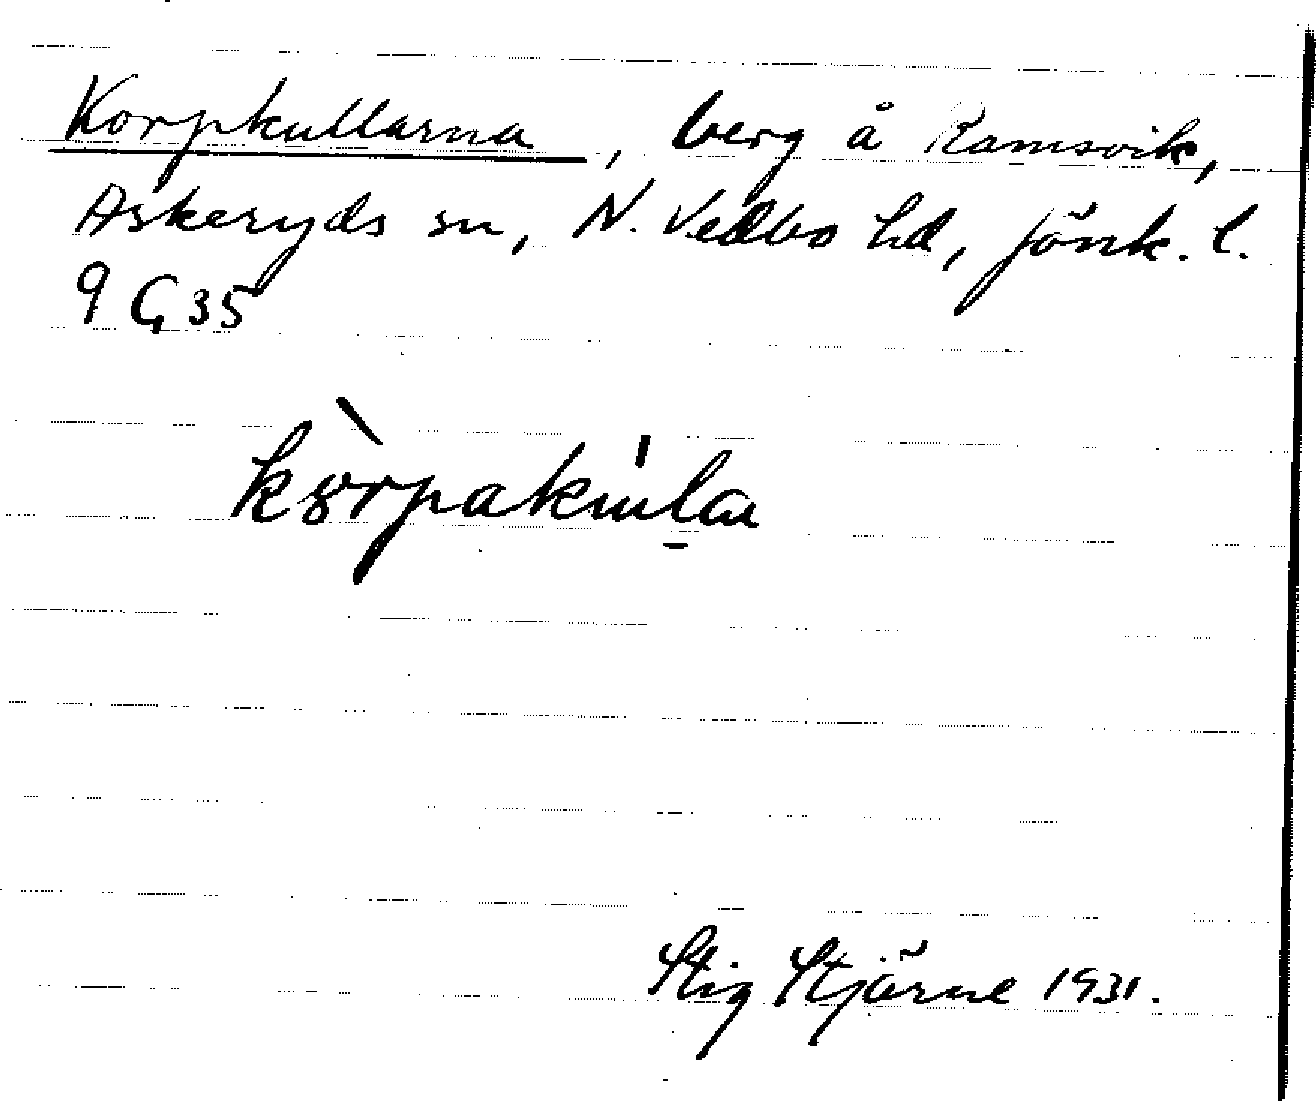 Korpkullarna, berg å Ramsvik,
Askeryds sn, N. Vedbo hd, Jönk. l.
9 G 35
kòrpakul̠a
Stig Stjärne 1931.